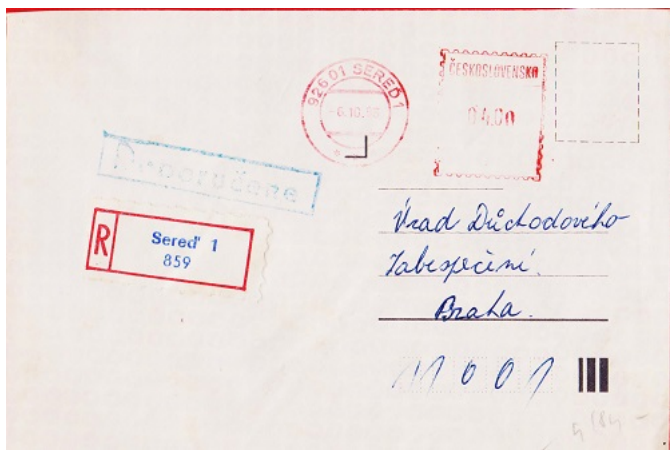 926 01 SEREĎ 1
-6.10.
ČESKOSLOVENSKO
04.00
Doporučene
R
Sereď 1
859
Úřad Důchodového
Zabespečení.
Praha.
11001